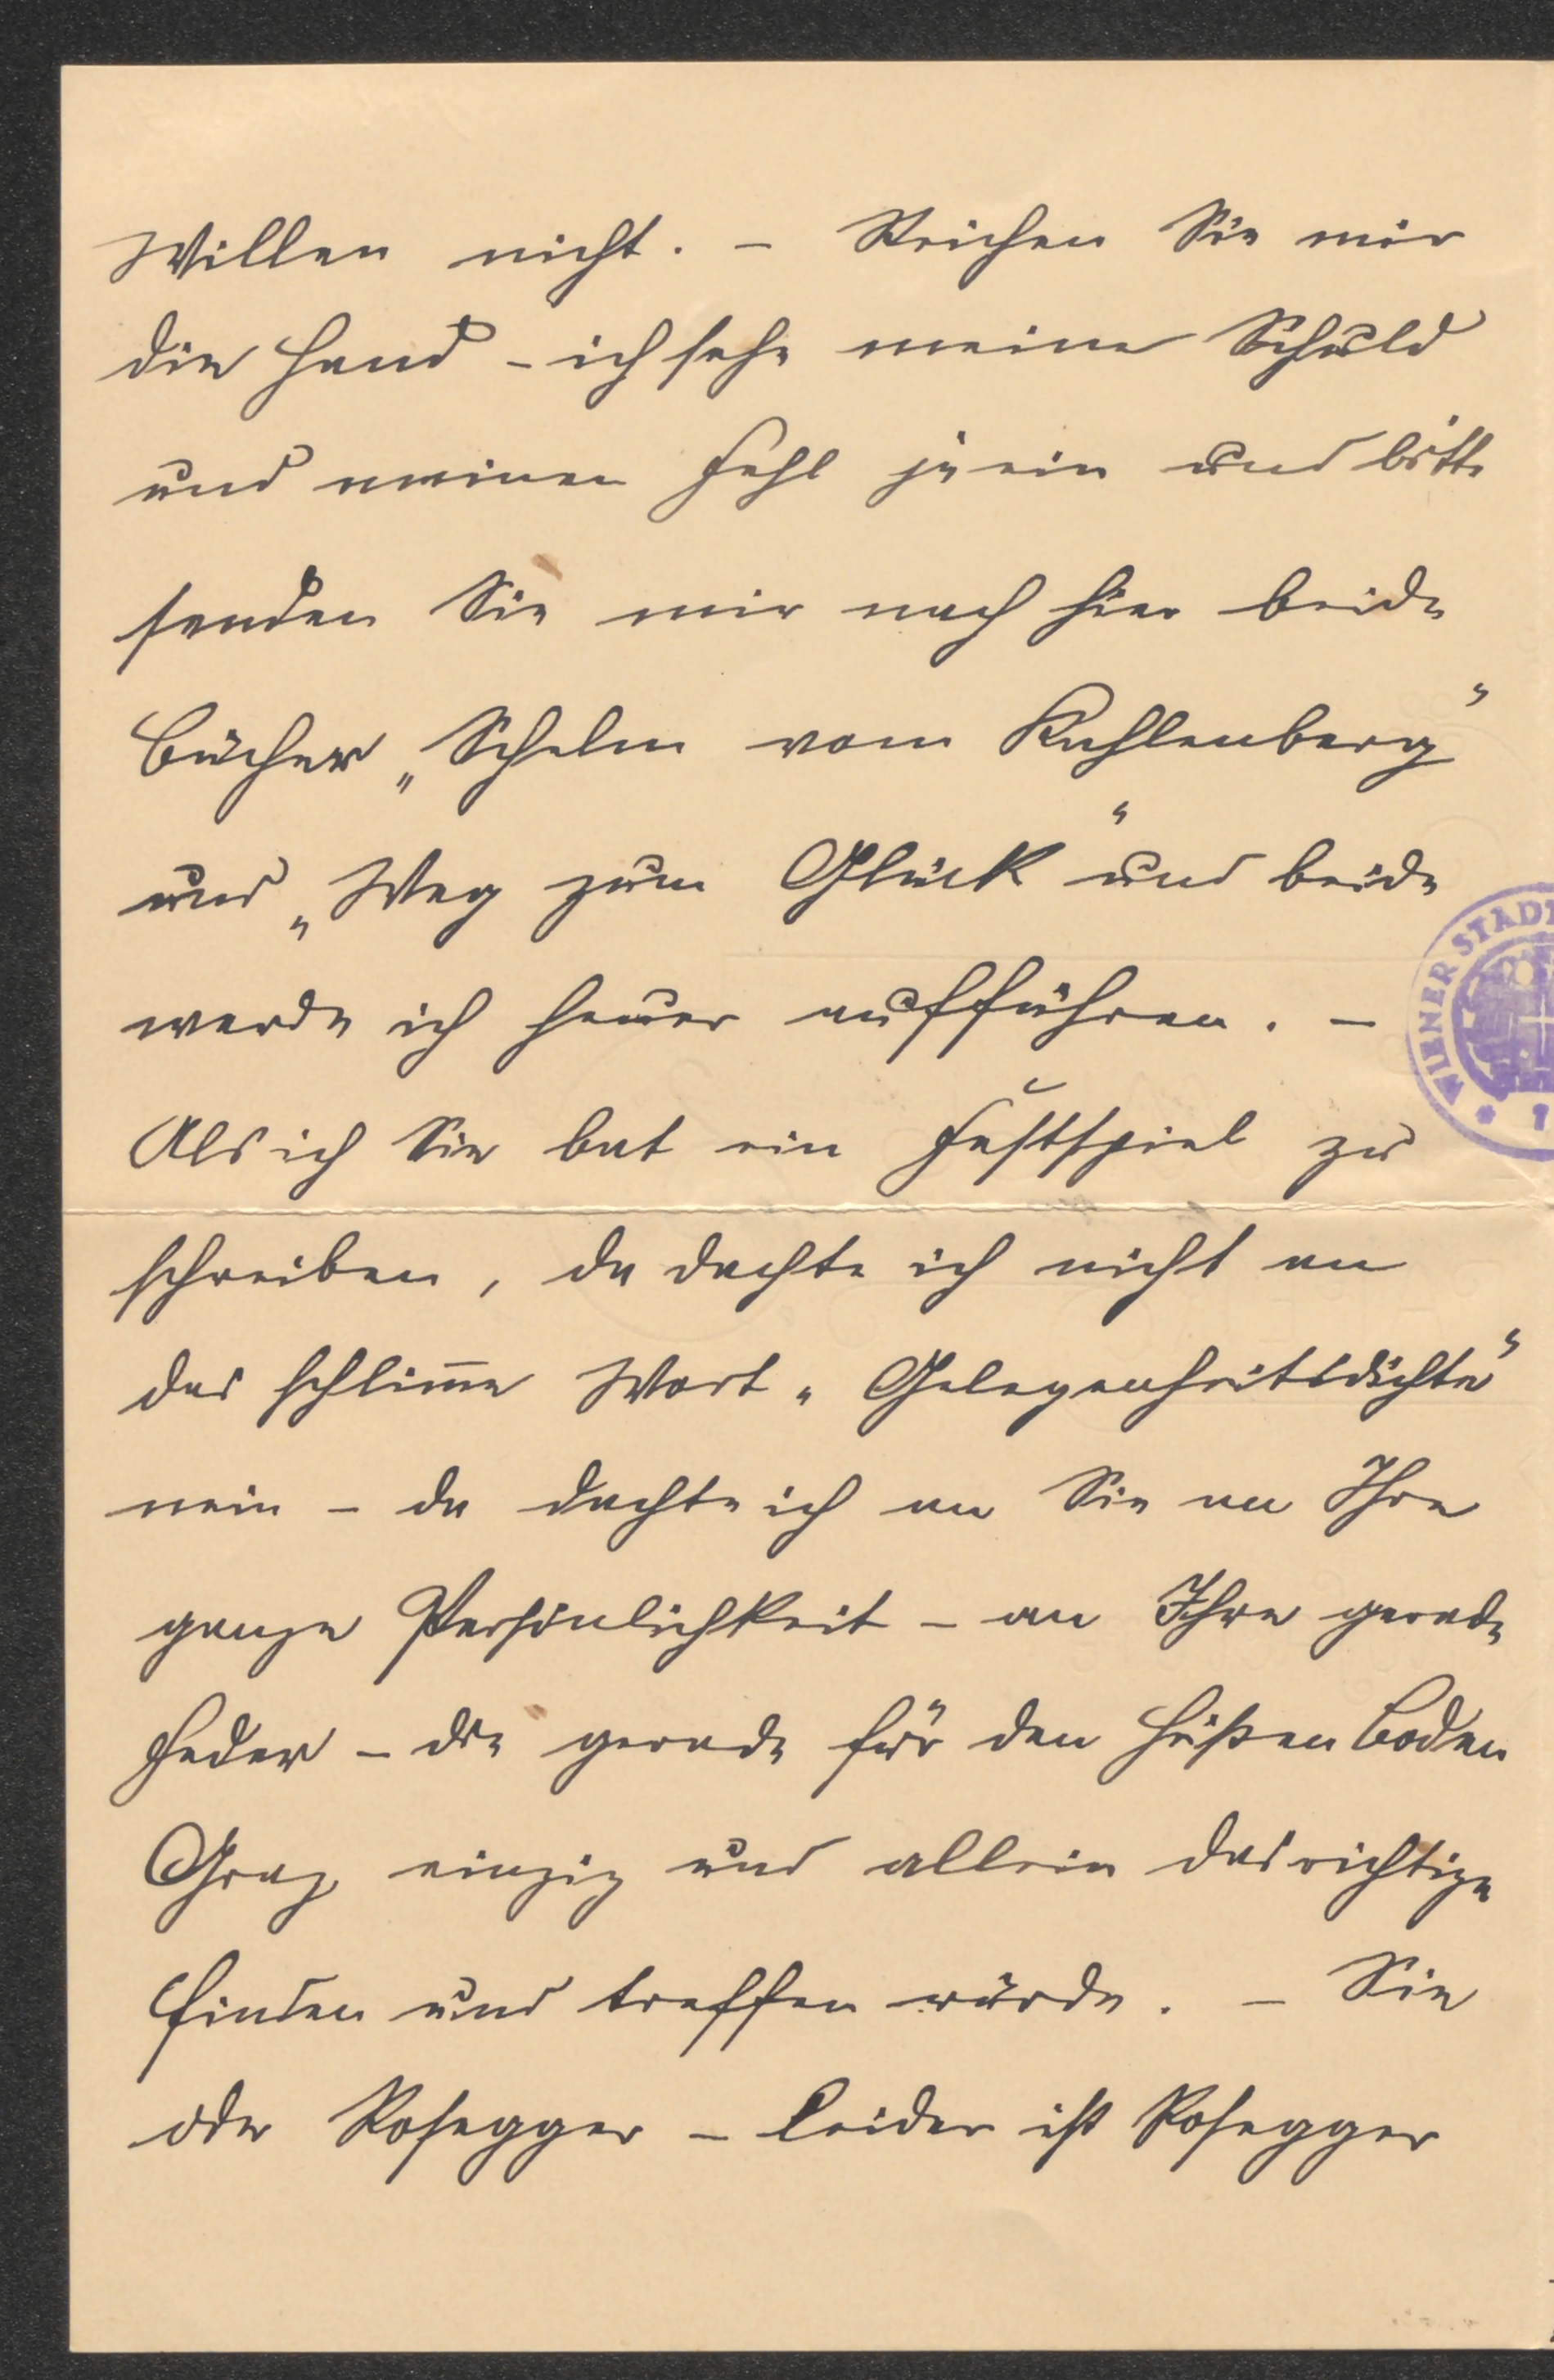 Willen nicht. – Reichen Sie mir
die Hand – ich sehe meine Schuld
und meinen Fehl ja ein und bitte
senden Sie mir nach hier beide
Bücher „Schelm vom Kahlenberg“
und „Weg zum Glück“ und beide
werde ich heuer aufführen. –
Als ich Sie bat ein Festspiel zu
schreiben, da dachte ich nicht an
das schlim̅e Wort „Gelegenheitsdichter“
nein – da dachte ich an Sie an Ihre
ganze Persönlichkeit – an Ihre gerade
Feder – die gerade für den heißen Boden
Graz einzig und allein das richtige
finden und treffen würde. – Sie
oder Rosegger – leider ist Rosegger
WIENER STADT